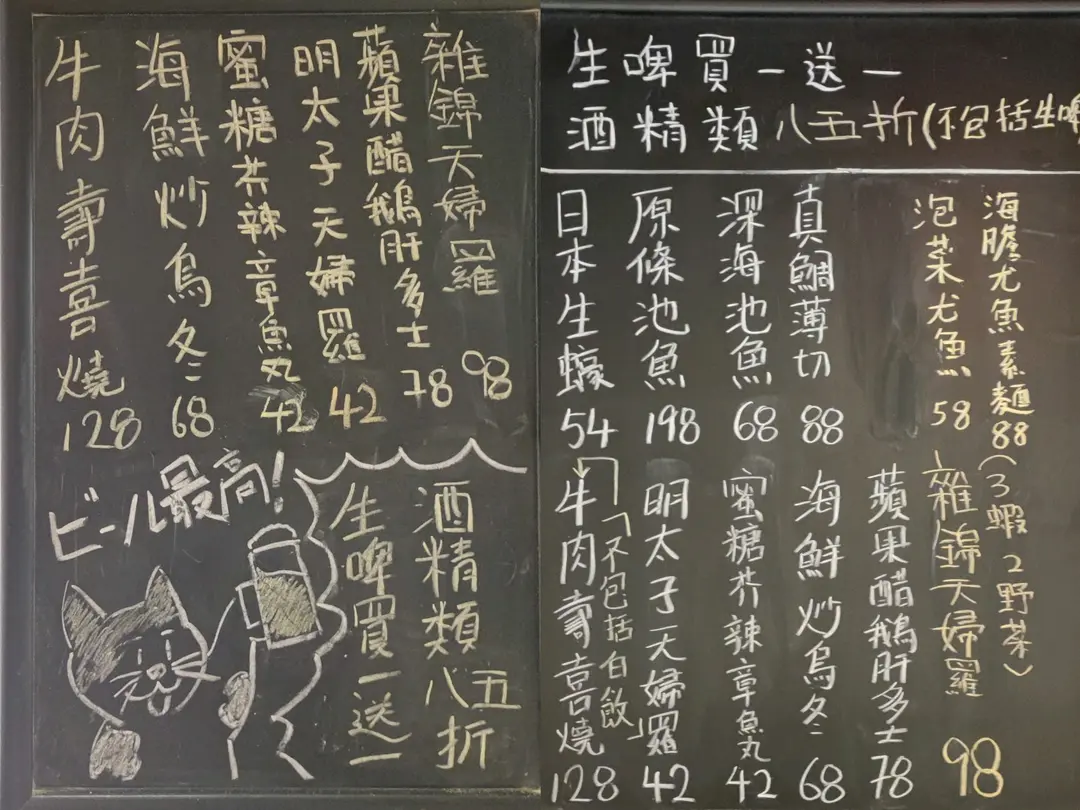 雜錦天婦羅 98
蘋果醋鵝肝多士 78
明太子天婦羅 42
蜜糖芥辣章魚丸 42
海鮮炒烏冬 68
牛肉壽喜燒 128
ビール最高!
酒精類八五折
生啤買一送一
生啤買一送一
酒精類八五折(不包括生啤
海膽尤魚素麵 88
泡菜尤魚 58
真鯛薄切 88
深海池魚 68
原條池魚 198
日本生蠔 54
雜錦天婦羅(3蝦2野菜) 98
蘋果醋鵝肝多士 78
海鮮炒烏冬 68
蜜糖芥辣章魚丸 42
明太子天婦羅 42
牛肉壽喜燒 128
「不包括白飯」